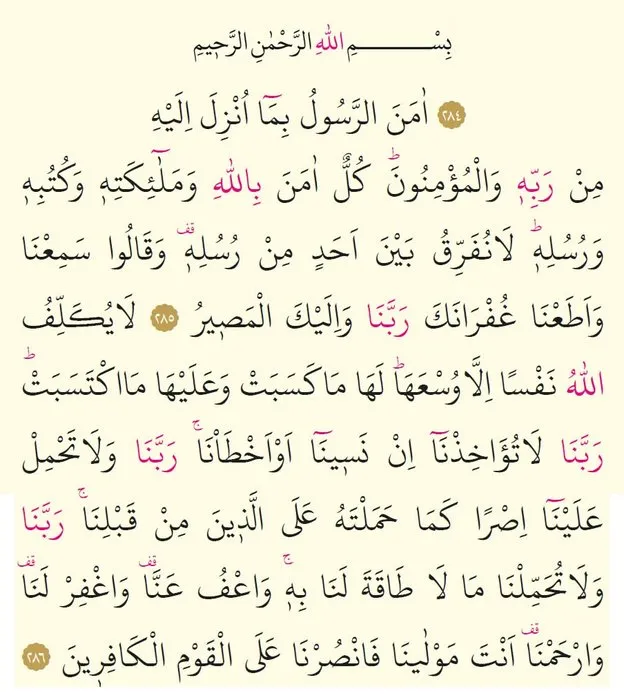 بِسْــــــــمِ اللهِ الرَّحْمٰنِ الرَّح۪يمِ
﴿٢٨٤﴾ اٰمَنَ الرَّسُولُ بِمَٓا اُنْزِلَ اِلَيْهِ
مِنْ رَبِّه۪ وَالْمُؤْمِنُونَۜ كُلٌّ اٰمَنَ بِاللهِ وَمَلٰٓئِكَتِه۪ وَكُتُبِه۪
وَرُسُلِه۪ۜ لَانُفَرِّقُ بَيْنَ اَحَدٍ مِنْ رُسُلِه۪ۗ وَقَالُوا سَمِعْنَا
وَاَطَعْنَا غُفْرَانَكَ رَبَّنَا وَاِلَيْكَ الْمَص۪يرُ ﴿٢٨٥﴾ لَايُكَلِّفُ
اللهُ نَفْسًا اِلَّاوُسْعَهَاۜ لَهَا مَاكَسَبَتْ وَعَلَيْهَا مَااكْتَسَبَتْۜ
رَبَّنَا لَاتُؤَاخِذْنَٓا اِنْ نَس۪ينَٓا اَوْاَخْطَأْنَاۚ رَبَّنَا وَلَاتَحْمِلْ
عَلَيْنَٓا اِصْرًا كَمَا حَمَلْتَهُ عَلَى الَّذ۪ينَ مِنْ قَبْلِنَاۚ رَبَّنَا
وَلَاتُحَمِّلْنَا مَا لَا طَاقَةَ لَنَا بِه۪ۚ وَاعْفُ عَنَّاۗ وَاغْفِرْ لَنَاۗ
وَارْحَمْنَاۗ اَنْتَ مَوْلٰينَا فَانْصُرْنَا عَلَى الْقَوْمِ الْكَافِر۪ينَ ﴿٢٨٦﴾